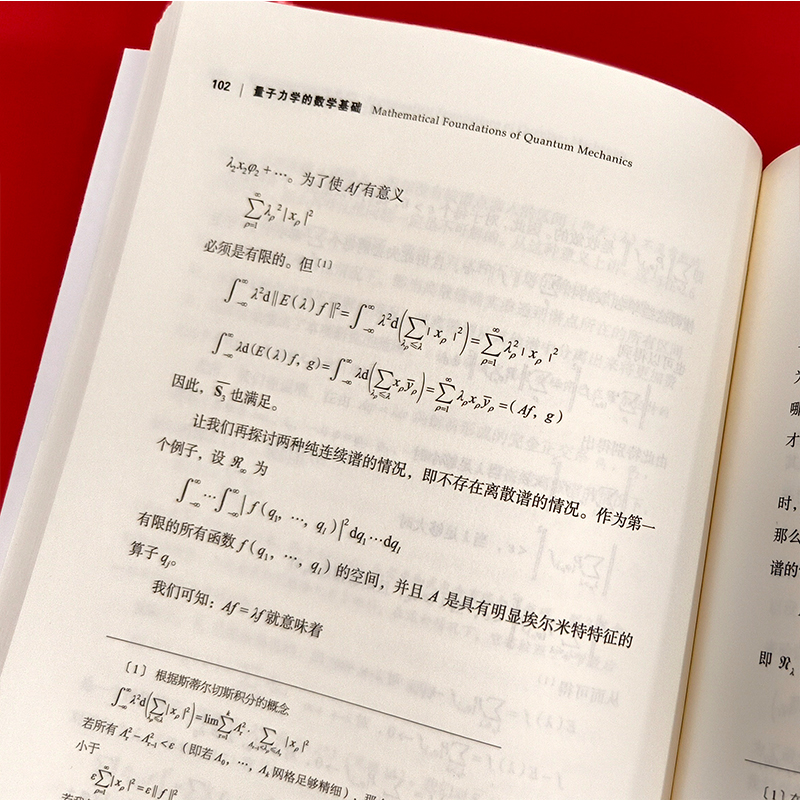 102 | 量子力学的数学基础 Mathematical Foundations of Quantum Mechanics
λ₂x₂φ₂ + ⋯。为了使 Af 有意义
∑_{ρ=1}^{∞} λ_ρ² |x_ρ|²
必须是有限的。但[1]
∫_{-∞}^{∞} λ²d‖E(λ)f‖² = ∫_{-∞}^{∞} λ²d(∑_{λ_ρ≤λ} |x_ρ|²) = ∑_{ρ=1}^{∞} λ_ρ² |x_ρ|²
∫_{-∞}^{∞} λd(E(λ)f, g) = ∫_{-∞}^{∞} λd(∑_{λ_ρ≤λ} x_ρ y̅_ρ) = ∑_{ρ=1}^{∞} λ_ρ x_ρ y̅_ρ = (Af, g)
因此，S̅₃ 也满足。
让我们再探讨两种纯连续谱的情况，即不存在离散谱的情况。作为第一
个例子，设 ℜ_∞ 为
∫_{-∞}^{∞} ⋯ ∫_{-∞}^{∞} |f(q₁, ⋯, q_l)|² dq₁⋯dq_l
有限的所有函数 f(q₁, ⋯, q_l) 的空间，并且 A 是具有明显埃尔米特特征的
算子 q_j。
我们可知：Af = λf 就意味着
[1] 根据斯蒂尔切斯积分的概念
∫_{-∞}^{∞} λ²d(∑_{λ_ρ≤λ} |x_ρ|²) = lim ∑_{τ=1}^{k} Λ_τ² · ∑ |x_ρ|²
若所有 Λ_τ² − Λ_{τ-1}² < ε（即若 Λ₀, ⋯, Λ_k 网格足够精细），那
小于
ε∑_{ρ=1}^{∞} |x_ρ|² = ε‖f‖²
哪
才
时，
那么
谱的
即 ℜ_λ
[1]